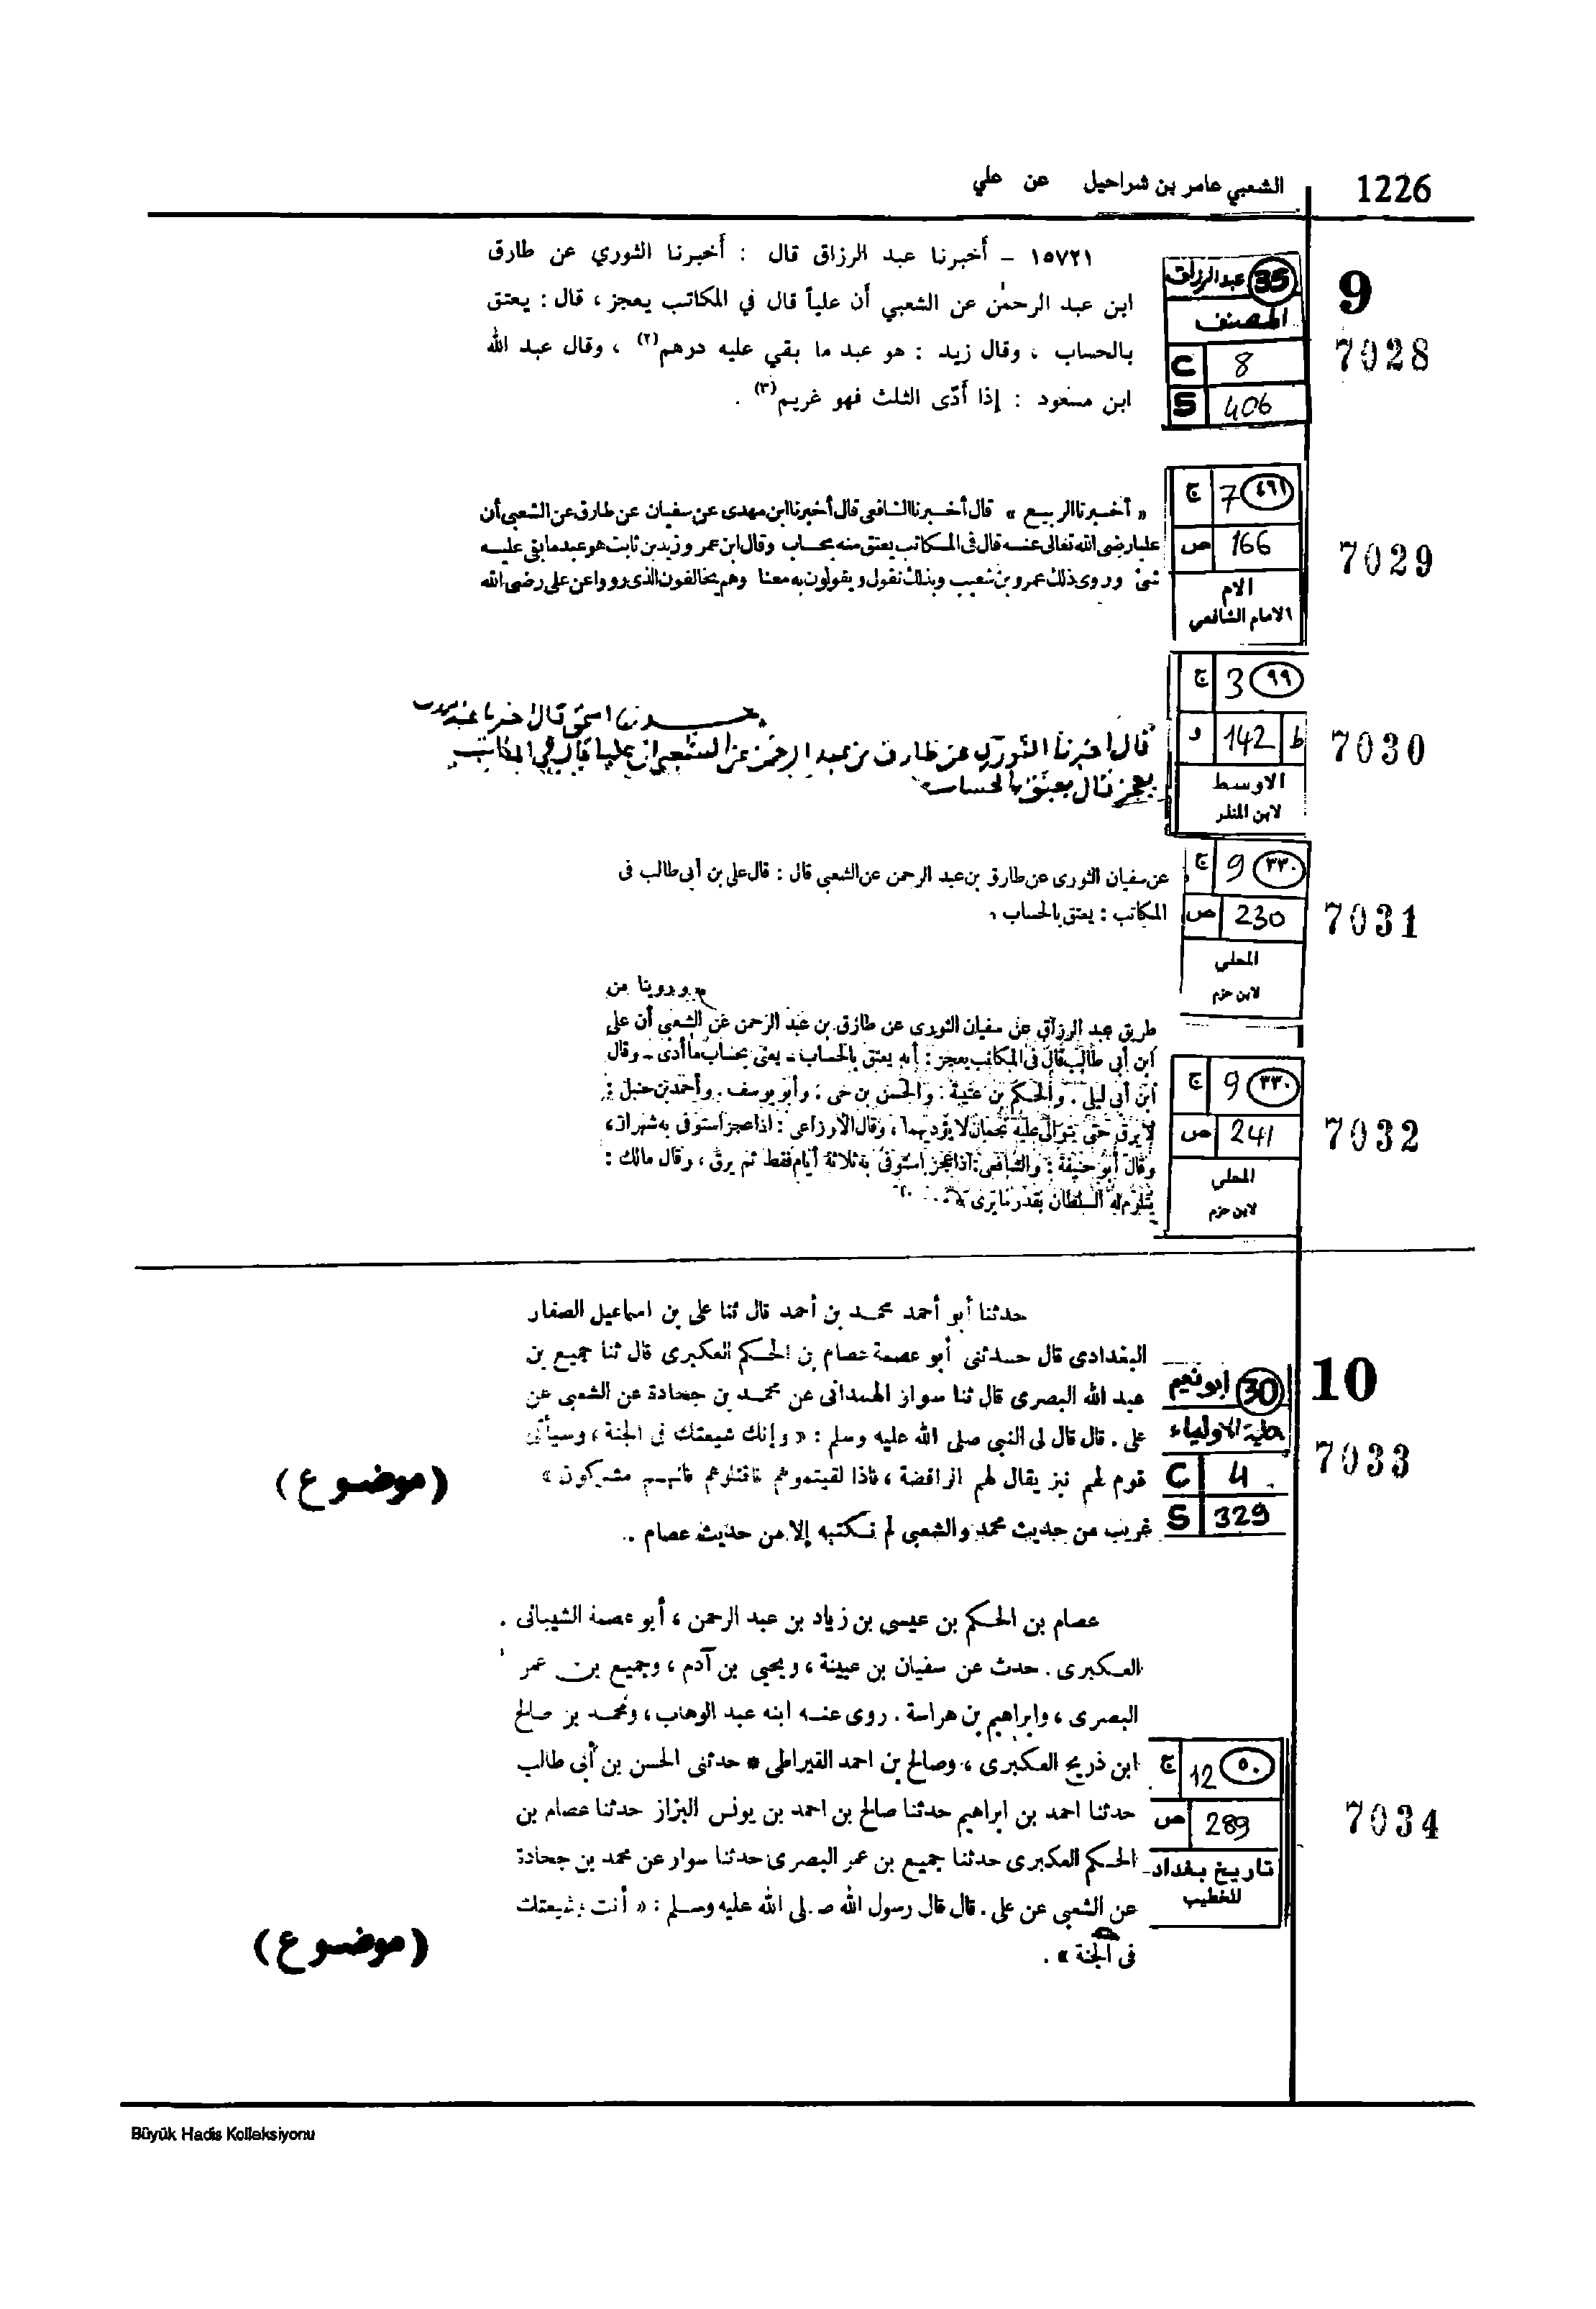 1226
الشعبي عامر بن شراحيل عن علي
9
7028
35 عبدالرزاق
المصنف
C 8
S 406
١٥٧٢١ - أخبرنا عبد الرزاق قال : أخبرنا الثوري عن طارق
ابن عبد الرحمٰن عن الشعبي أن علياً قال في المكاتب يعجز ، قال : يعتق
بالحساب ، وقال زيد : هو عبد ما بقي عليه درهم(٢) ، وقال عبد الله
ابن مسعود : إذا أدّى الثلث فهو غريم(٣) .
7029
ج 7 ٤٦١
ص 166
الام
الامام الشافعي
« أخبرنا الربيع » قال أخبرنا الشافعى قال أخبرنا ابن مهدى عن سفيان عن طارق عن الشعبى أن
عليا رضى الله تعالى عنه قال فى المكاتب يعتق منه بحساب وقال ابن عمر وزيد بن ثابت هو عبد ما بقى عليه
شئ وروى ذلك عمرو بن شعيب وبذلك نقول ويقولون به معنا وهم يخالفون الذى رووا عن على رضى الله
7030
ج 3 ٩٩
و 142 ط
الاوسط
لابن المنذر
اسحق قال اخبرنا عبد
قال اخبرنا الثوري عن طارق بن عبد الرحمن عن الشعبي ان عليا قال في المكاتب
يعجز قال يعتق بالحساب
7031
ج 9 ٣٣٠
ص 230
المحلى
لابن حزم
عن سفيان الثورى عن طارق بن عبد الرحمن عن الشعبى قال : قال على بن أبى طالب فى
المكاتب : يعتق بالحساب ،
7032
ج 9 ٣٣٠
ص 241
المحلى
لابن حزم
وروينا من
طريق عبد الرزاق عن سفيان الثورى عن طارق بن عبد الرحمن عن الشعبى أن على
ابن أبى طالب قال فى المكاتب يعجز : أنه يعتق بالحساب - يعنى بحساب ما أدى - وقال
ابن أبى ليلى . والحكم بن عتيبة . والحسن بن حى : وأبو يوسف . وأحمد بن حنبل :
لا يرق حتى يتوالى عليه نجمان لا يؤديهما ، وقال الأوزاعى : اذا عجز استوفى به شهران ،
وقال أبو حنيفة : والشافعى : اذا عجز استوفى به ثلاثة أيام فقط ثم يرق ، وقال مالك :
يتلوم له السلطان بقدر ما يرى
10
7033
30 ابو نعيم
حلية الاولياء
C 4
S 329
حدثنا أبو أحمد محمد بن أحمد قال ثنا على بن اسماعيل الصفار
البغدادى قال حدثنى أبو عصمة عصام بن الحكم العكبرى قال ثنا جميع بن
عبد الله البصرى قال ثنا سوار الهمدانى عن محمد بن جحادة عن الشعبى عن
على . قال قال لى النبى صلى الله عليه وسلم : « وإنك شيعتك فى الجنة ، وسيأتى
قوم لهم نبز يقال لهم الرافضة ، فاذا لقيتموهم فاقتلوهم فانهم مشركون »
غريب من حديث محمد والشعبى لم نكتبه إلا من حديث عصام .
(موضوع)
7034
ج 12 ٥٠
ص 289
تاريخ بغداد
للخطيب
عصام بن الحكم بن عيسى بن زياد بن عبد الرحمن ، أبو عصمة الشيبانى .
العكبرى . حدث عن سفيان بن عيينة ، ويحيى بن آدم ، وجميع بن عمر
البصرى ، وابراهيم بن هراسة . روى عنه ابنه عبد الوهاب ، ومحمد بن صالح
ابن ذريح العكبرى ، وصالح بن احمد القيراطى * حدثنى الحسن بن أبى طالب
حدثنا احمد بن ابراهيم حدثنا صالح بن احمد بن يونس البزاز حدثنا عصام بن
الحكم العكبرى حدثنا جميع بن عمر البصرى حدثنا سوار عن محمد بن جحادة
عن الشعبى عن على . قال قال رسول الله صلى الله عليه وسلم : « أنت وشيعتك
فى الجنة » .
(موضوع)
Büyük Hadis Kolleksiyonu